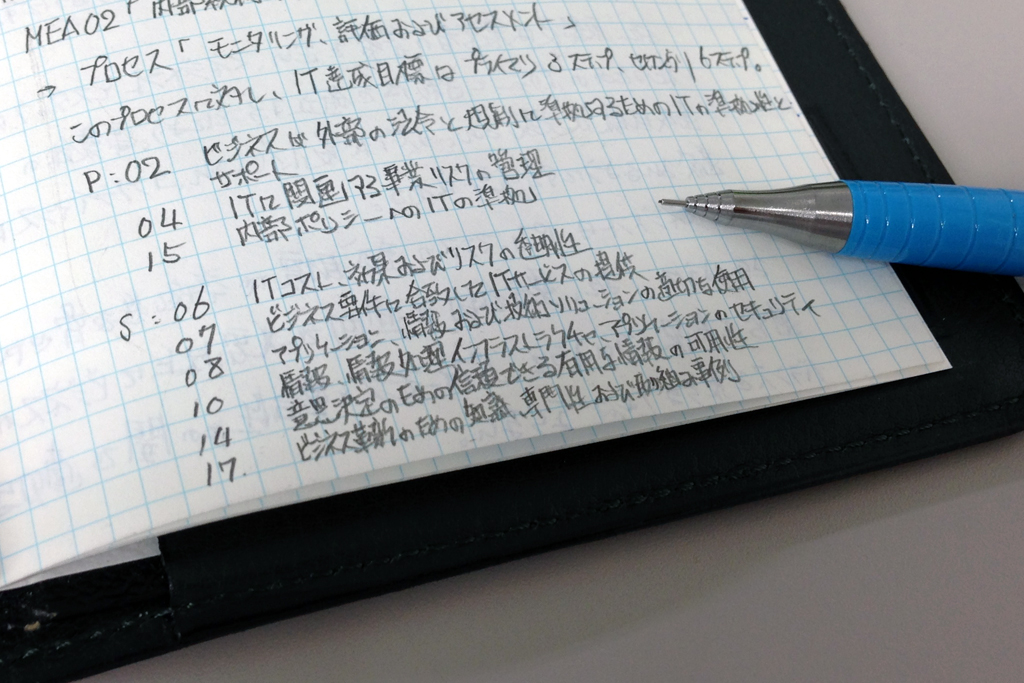 MEA02「内部統制
→ プロセス「モニタリング、評価およびアセスメント」
このプロセスに対し、IT達成目標は プライマリ 3ステップ、セカンダリ 6ステップ。
P:02 ビジネスが外部の法令と規制に準拠するためのITの準拠性と
サポート
04 ITに関連する事業リスクの管理
15 内部ポリシーへのITの準拠
S:06 ITコスト、効果およびリスクの透明性
07 ビジネス要件に合致したITサービスの提供
08 アプリケーション、情報および技術ソリューションの適切な使用
10 情報、情報処理インフラストラクチャ、アプリケーションのセキュリティ
14 意思決定のための信頼できる有用な情報の可用性
17. ビジネス革新のための知識、専門性および取り組み事例